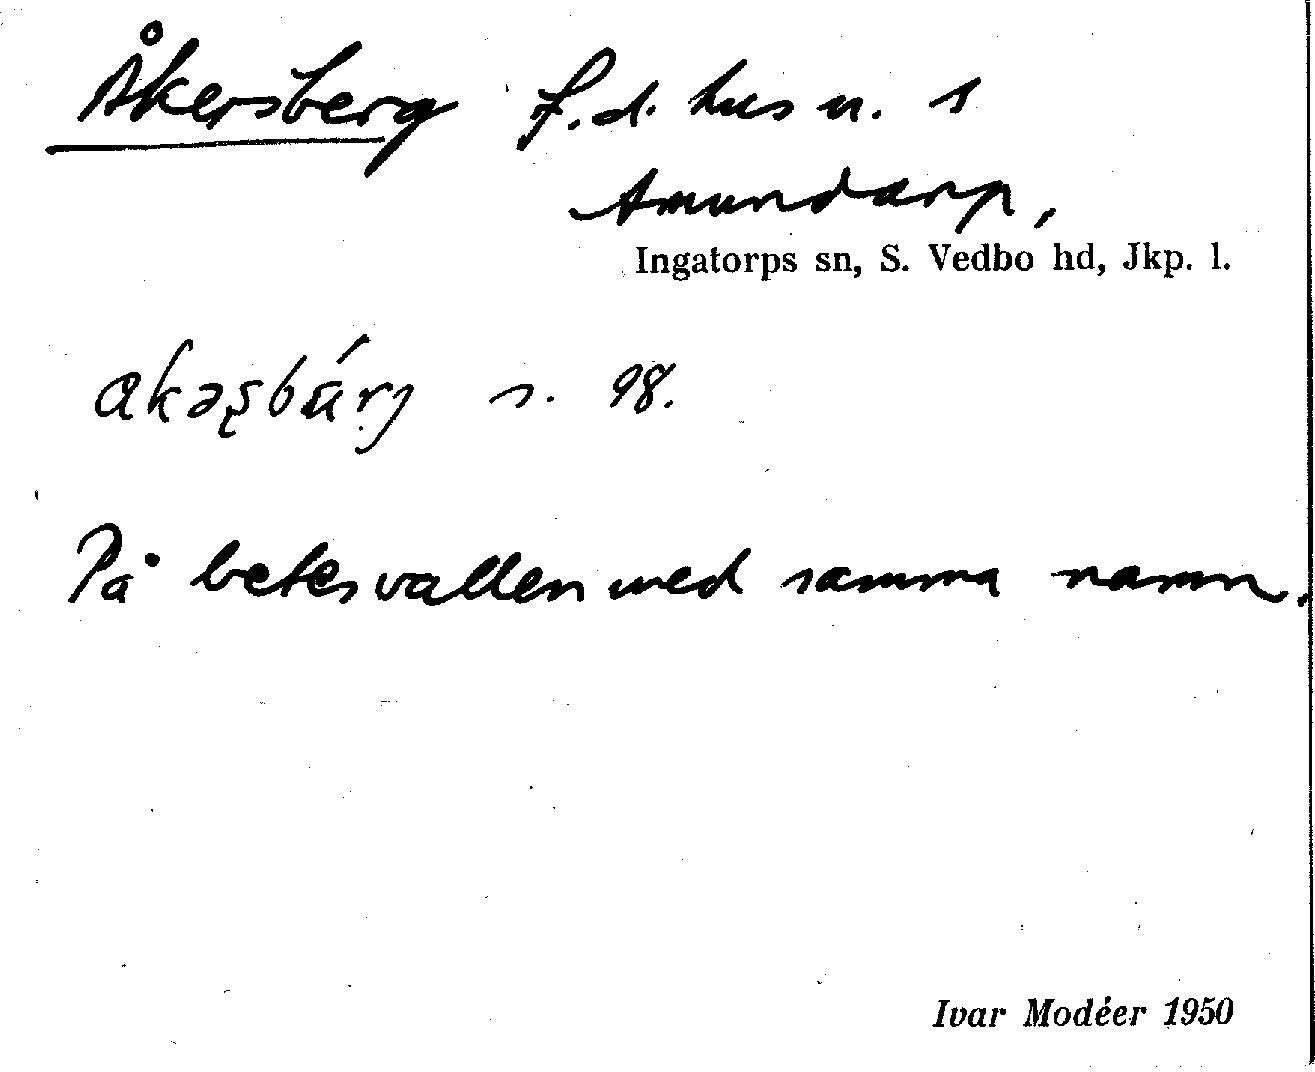 Åkersberg f.d. hus n. 1
Amundarp,
Ingatorps sn, S. Vedbo hd, Jkp. l.
s. 98.
På betesvallen med samma namn.
Ivar Modéer 1950